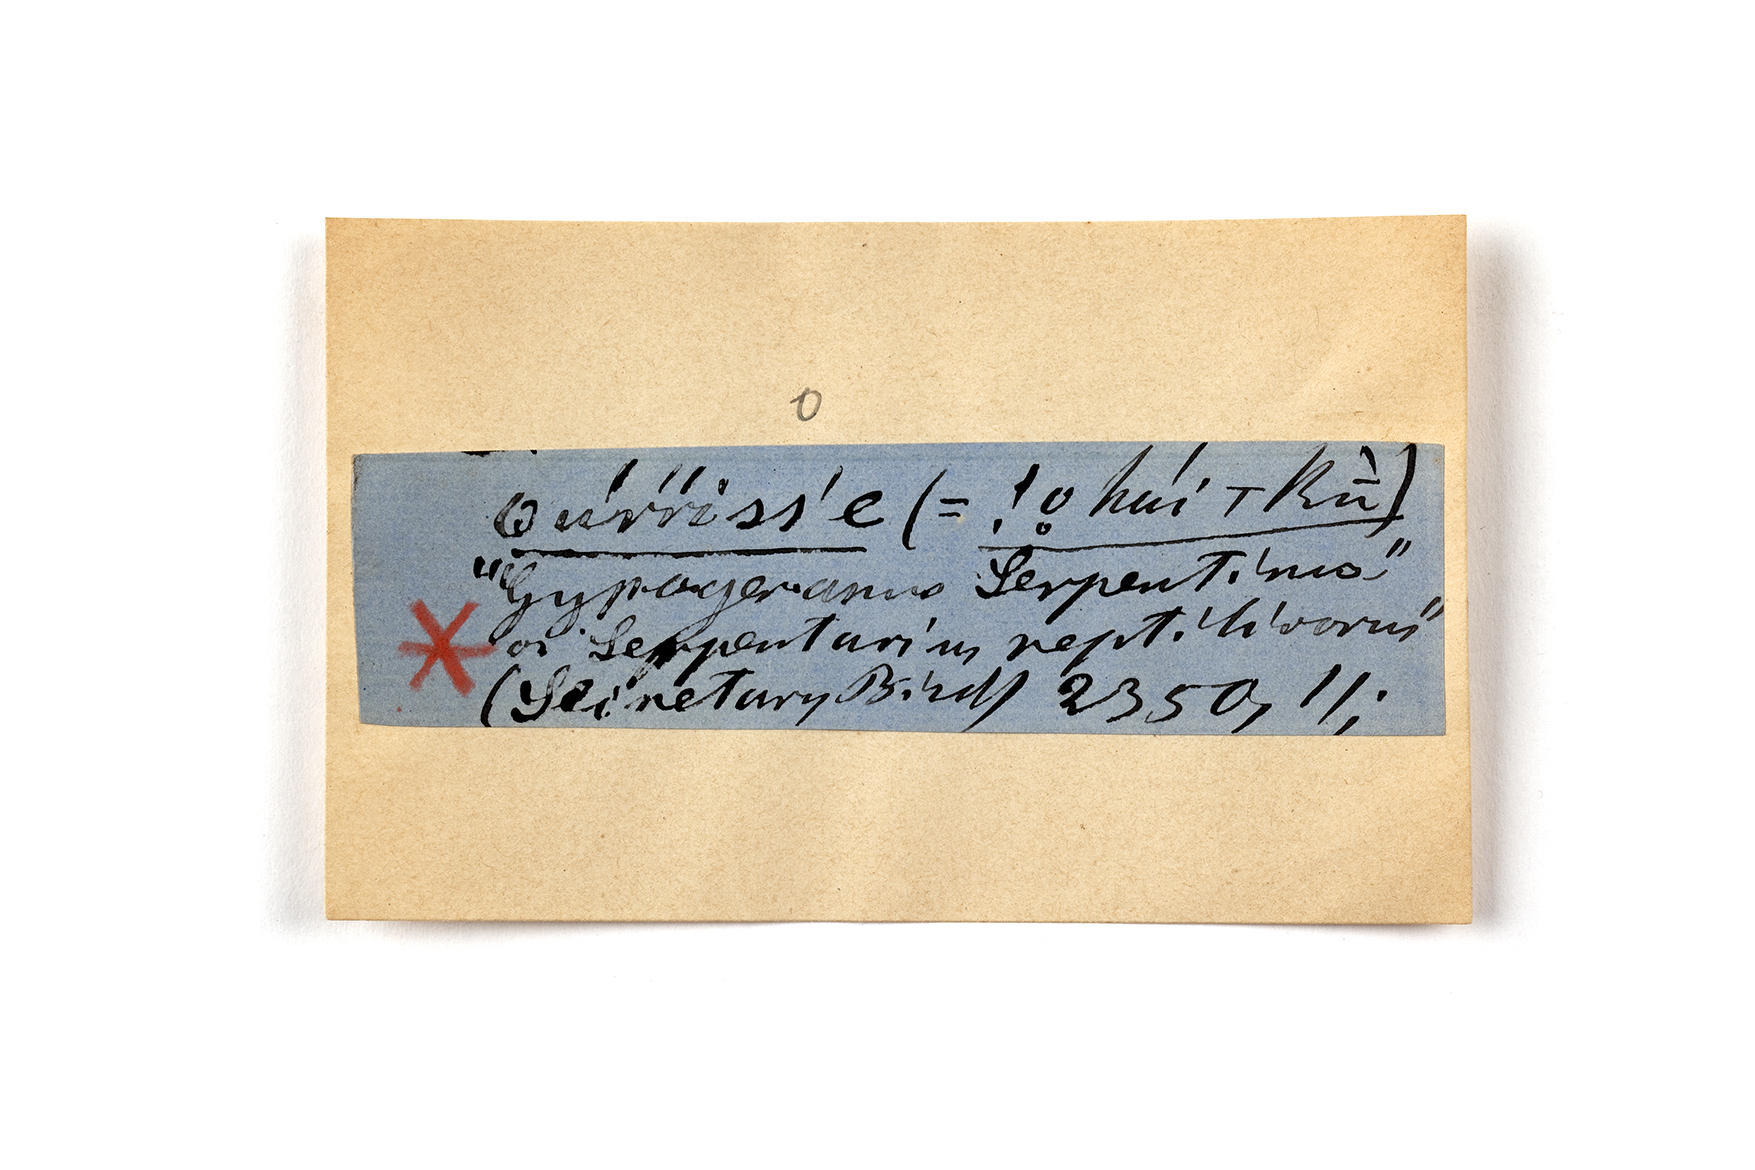 O
ʘuárrissĕ (= !o̥ húi ⊤ kù̄)
"Gypogeranus Serpentinus"
or Serpentarius reptilivorus"
(Secretary Bird) 2350, 11;